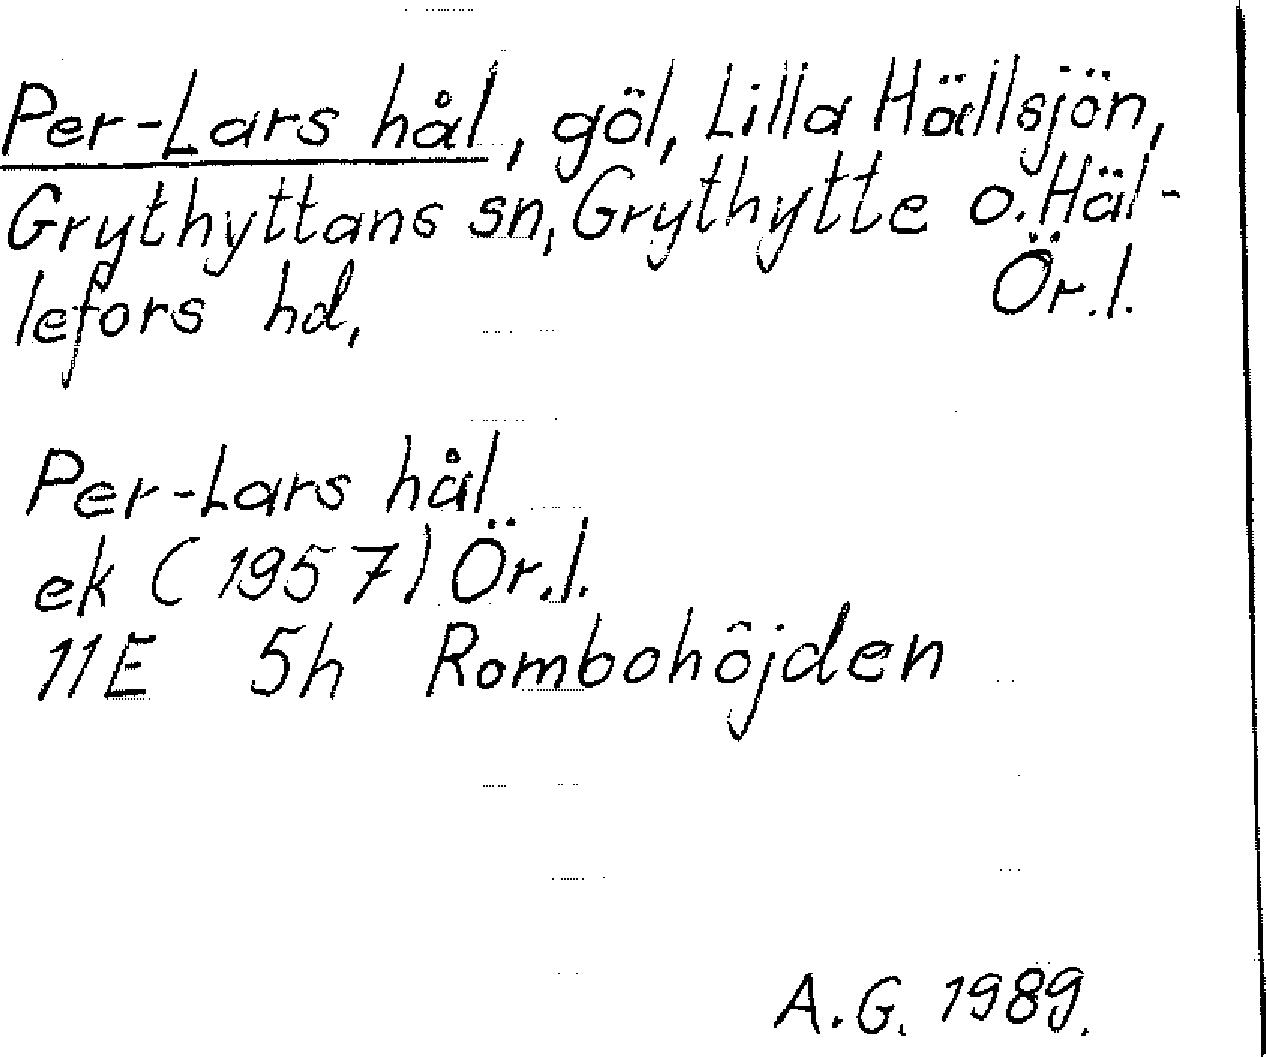 Per-Lars hål, göl, Lilla Hällsjön,
Grythyttans sn, Grythytte o. Häl-
lefors hd, Ör.l.
Per-Lars hål
ek (1957) Ör.l.
11E 5h Rombohöjden
A.G. 1989.